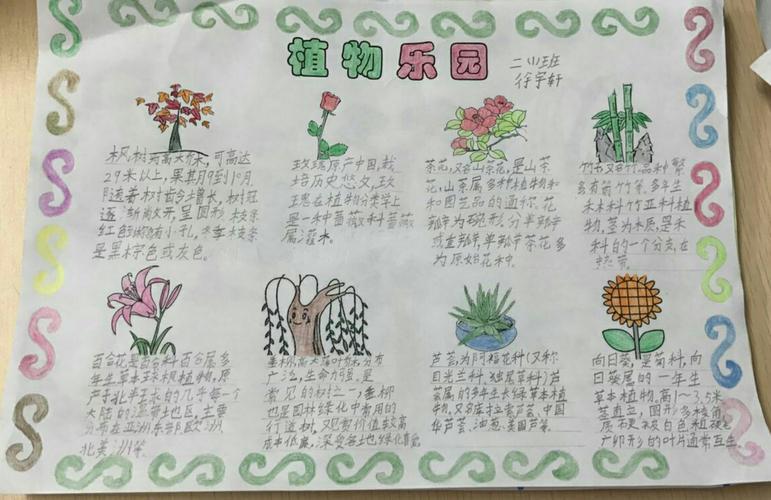 植物乐园
二(1)班
徐宇轩
枫树为高大乔木，可高达
29米以上，果其月9到10月
随着树龄增长，树冠
逐渐敞开，呈圆形，枝条
红色 有小孔，冬季枝条
是黑棕色或灰色。
玫瑰原产中国，栽
培历史悠久，玫
瑰在植物分类学上
是一种蔷薇科蔷薇
属灌木。
茶花，又名山茶花，是山茶
花，山茶属多种植物和
和园艺品的通称，花
瓣为碗形，分单瓣
或重瓣，单瓣茶花多
为原始花种。
竹 又名竹，品种繁
多有箭竹等，多年生
禾本科竹亚科植
物，茎为木质，是禾
科的一个分支，在
热带。
百合花是百合科百合属多
年生草本球根植物，原
产于北半球的几乎每一个
大陆的温带地区，主要
分布在亚洲东部欧洲，
北美洲等。
垂柳，高大落叶 分布
广泛，生命力强，是
常见的树之一，垂柳
也是园林绿化中常用的
行道树，观赏价值较高
成本低廉，深受各地绿化喜爱
芦荟，为阿福花科(又称
日光兰科、独尾草科)芦
荟属的多年生长绿草本植
物，又名库拉索芦荟、中国
华芦荟、油葱、美国芦荟。
向日葵，是菊科，向
日葵属的一年生
草本植物，高1~3.5米
茎直立，圆形多棱角
质 被白色粗硬毛
广卵形的叶片通常互生